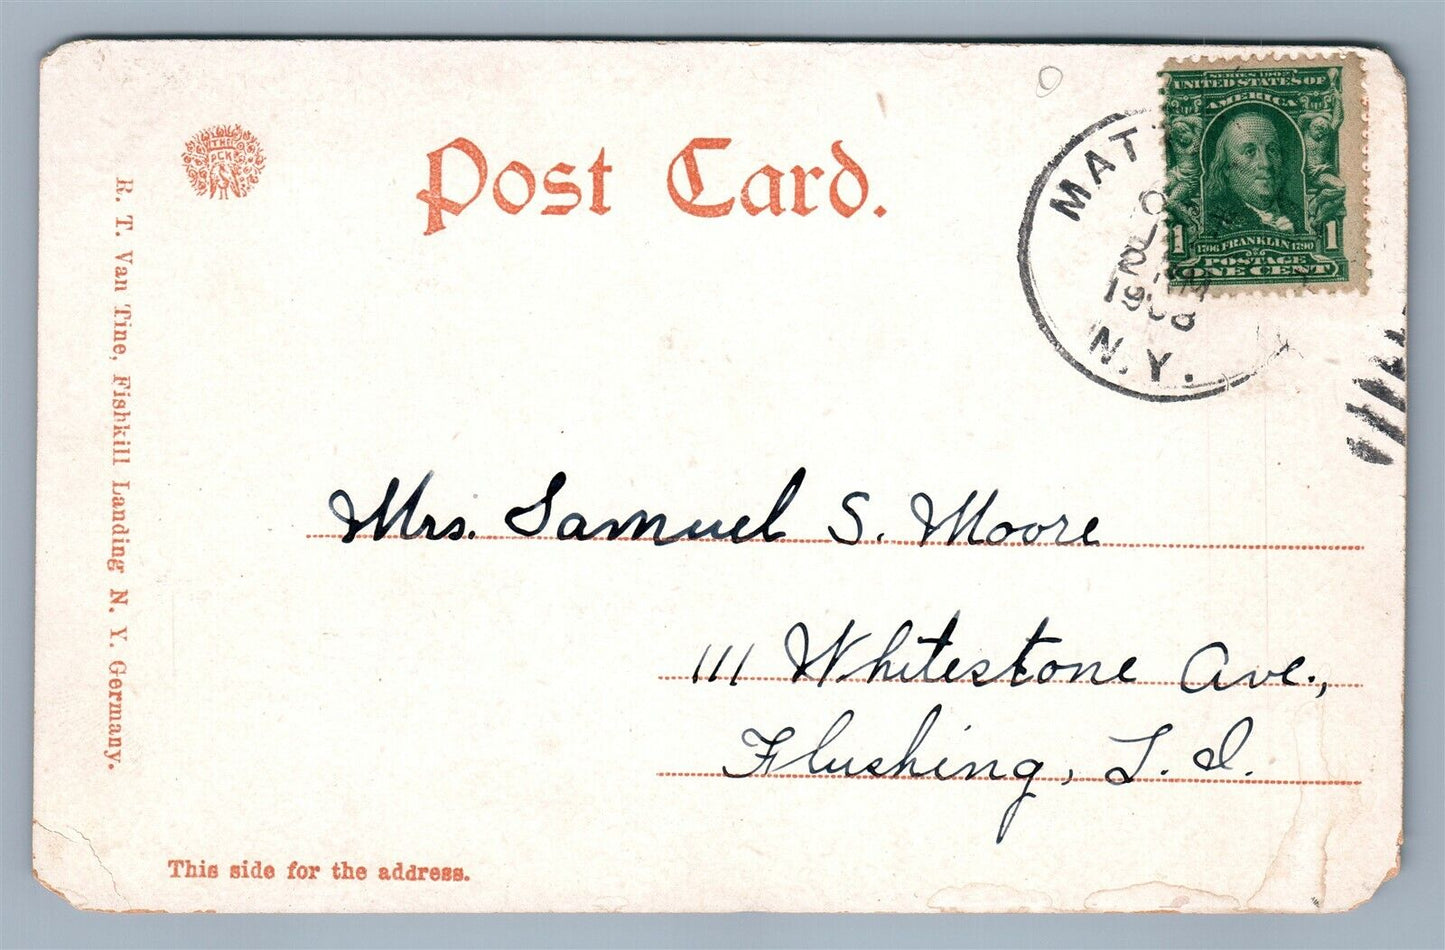 THE
PCK
Post Card.
SERIES 1902
UNITED STATES OF
AMERICA
1 1706 FRANKLIN 1790 1
POSTAGE
ONE CENT
MAT
2
1908
N.Y.
R. T. Van Tine, Fishkill Landing N. Y. Germany.
Mrs. Samuel S. Moore
111 Whitestone Ave.,
Flushing, L. I.
This side for the address.